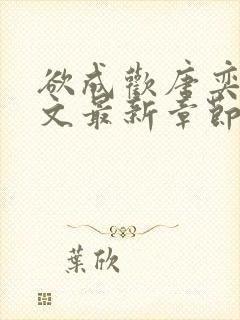 欲成歡唐奕
文最新章節
葉欣